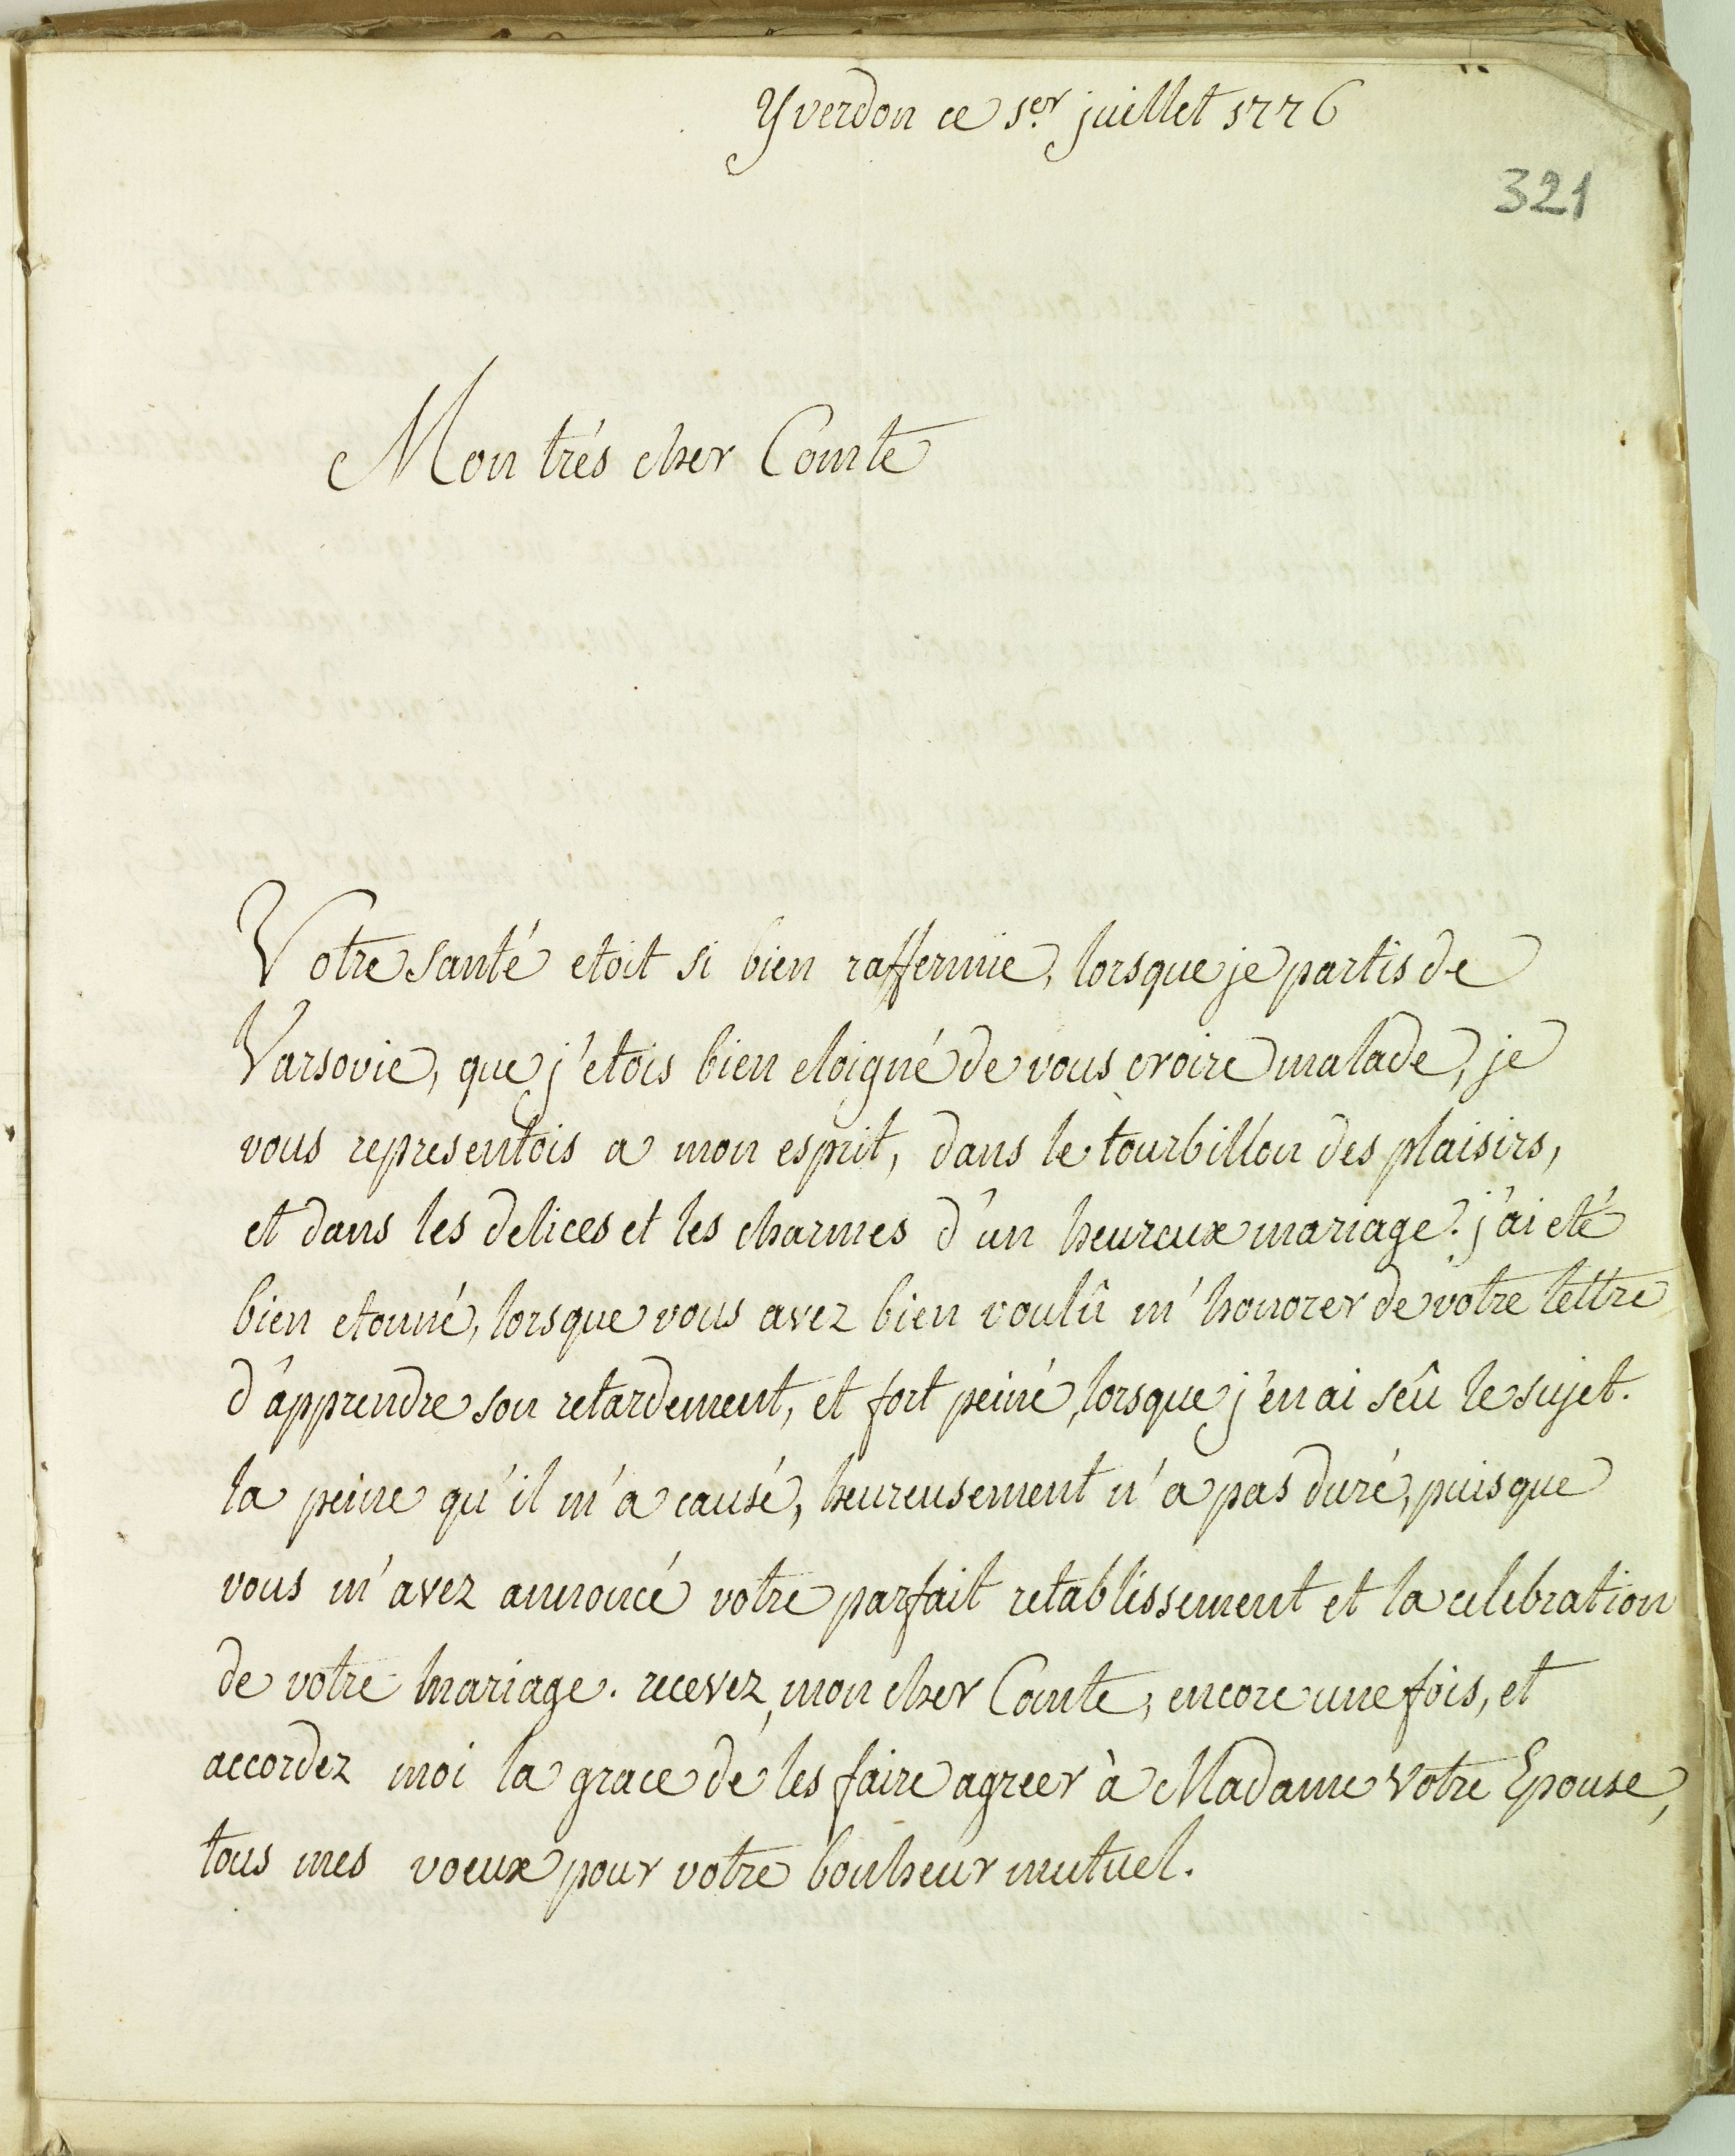 Yverdon ce 1.er juillet 1776
321
Mon trés cher Comte
Votre santé etoit si bien raffermie, lorsque je partis de
Varsovie, que j'etois bien eloigné de vous croire malade, je
vous representois a mon esprit, dans le tourbillon des plaisirs,
et dans les delices et les charmes d'un heureux mariage. j'ai eté
bien etonné, lorsque vous avez bien voulû m'honorer de votre lettre
d'apprendre son retardement, et fort peiné, lorsque j'en ai sêû le sujet.
la peine qu'il m'a causé, heureusement n'a pas duré, puisque
vous m'avez annoncé votre parfait retablissement et la celebration
de votre mariage. recevez, mon cher Comte, encore une fois, et
accordez moi la grace de les faire agreer à Madame votre Epouse,
tous mes voeux pour votre bonheur mutuel.